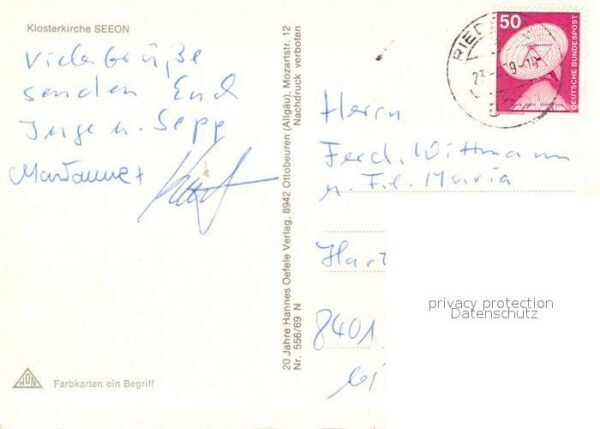 Klosterkirche SEEON
Viele Grüße
senden Euch
Inge u. Sepp
Marianne +
20 Jahre Hannes Oefele Verlag, 8942 Ottobeuren (Allgäu), Mozartstr. 12
Nr. 556/69 N
Nachdruck verboten
50
DEUTSCHE BUNDESPOST
RIED
Herrn
Ferd. Wittmann
u. Frl. Maria
8401
privacy protection
Datenschutz
HON
Farbkarten ein Begriff